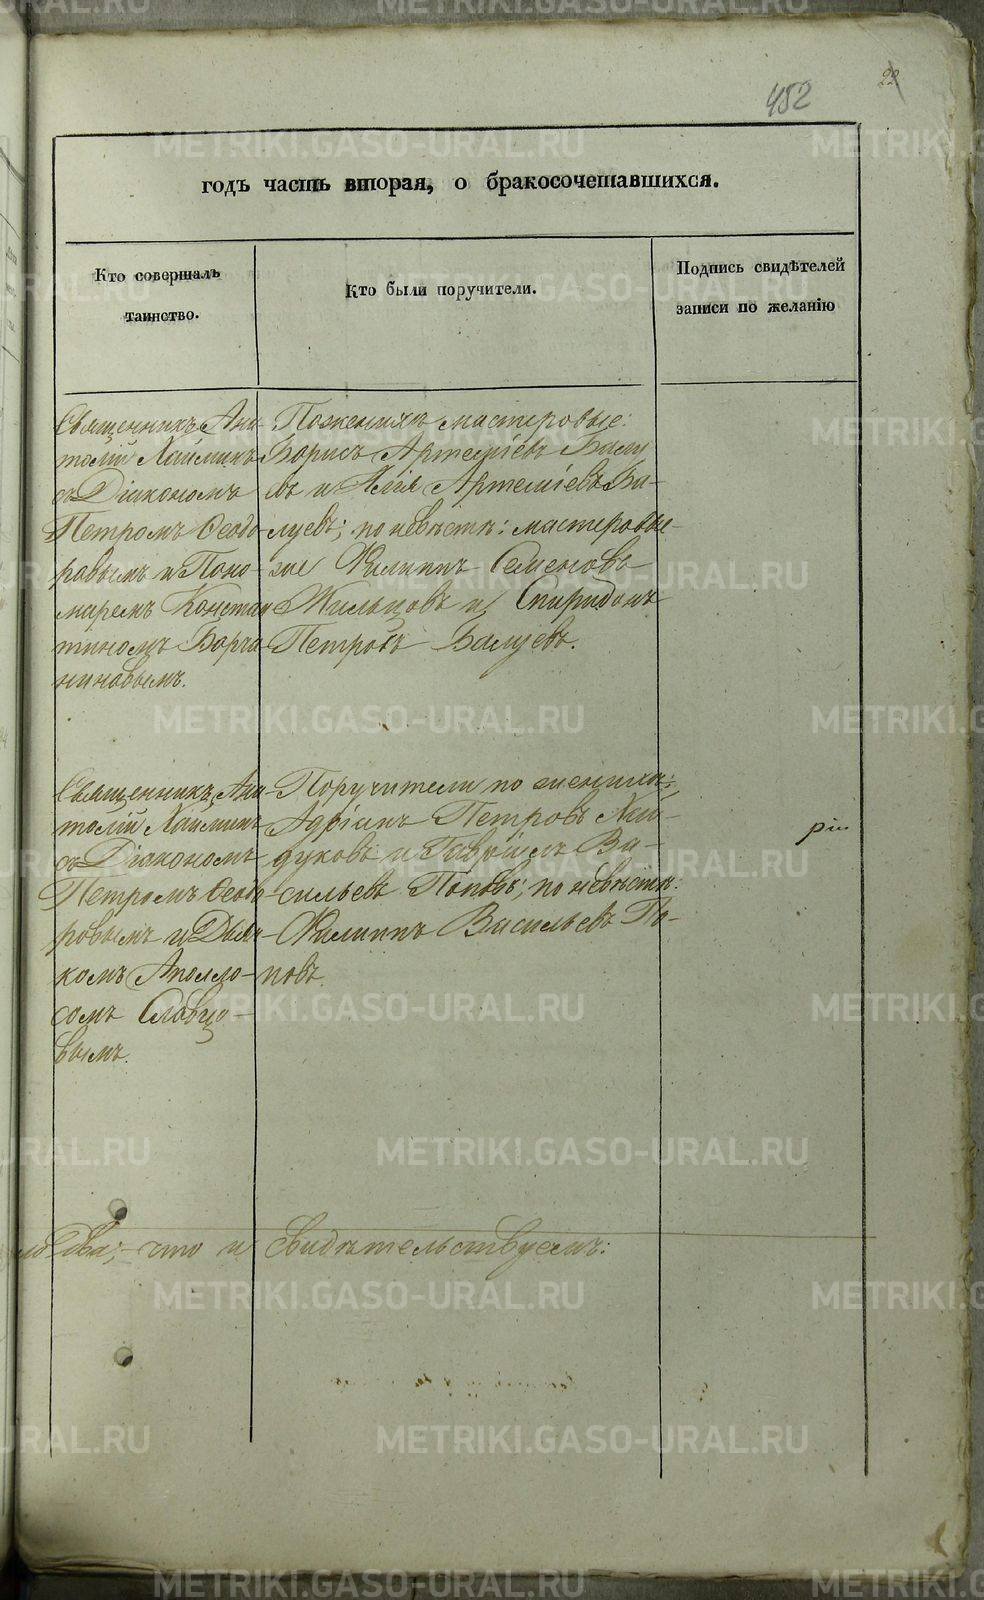 452
22
годъ часть вторая, о бракосочетавшихся.
Кто совершалъ
таинство.
Кто были поручители.
Подпись свидѣтелей
записи по желанію
Священникъ Ана-
толій
съ Діакономъ
Петромъ Ѳеодо-
ровымъ и Поно-
маремъ Констан
тиномъ Борча
ниновымъ.
По женихѣ мастеровые:
Борисъ Артеміевъ Балу
евъ и Илія Артеміевъ Ба-
луевъ; по невѣстѣ: мастеровые
Филиппъ Семеновъ
Жильцовъ и Спиридонъ
Петровъ Балуевъ.
Священникъ Ана-
толій
съ Діакономъ
Петромъ Ѳеодо-
ровымъ и Дьяч-
комъ Аполло-
сомъ Словцо-
вымъ.
Поручители по женихѣ:
Адріанъ Петровъ
и Гавріилъ Ва-
сильевъ Поповъ; по невѣстѣ:
Филиппъ Васильевъ По-
повъ.
что и свидѣтельствуемъ:
METRIKI.GASO-URAL.RU